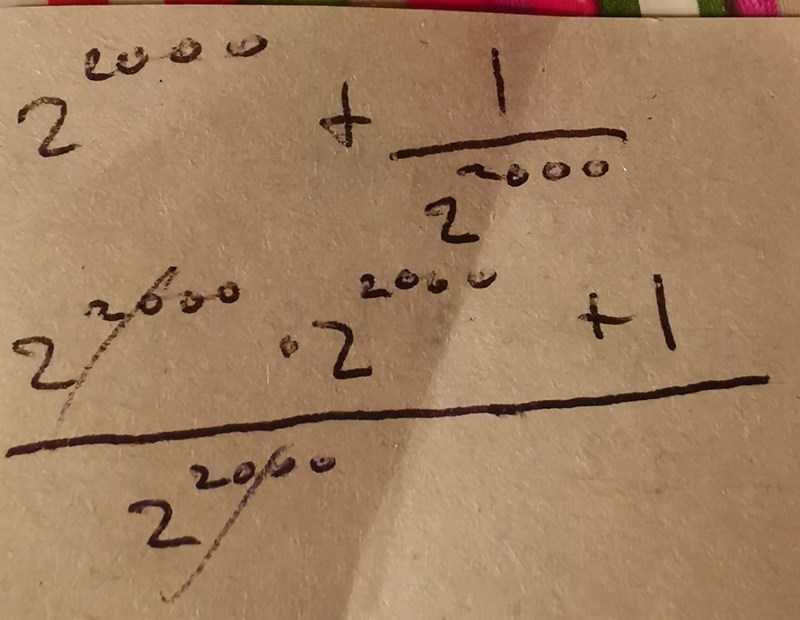 2^2000 + 1/2^2000
(2^2000 · 2^2000 + 1)/2^2000